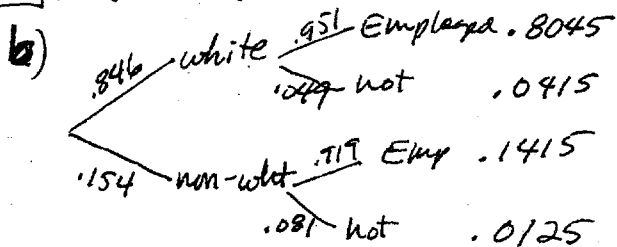 b)
.846 white .951 Employed .8045
.049 not .0415
.154 non-wht .919 Emp .1415
.081 not .0125